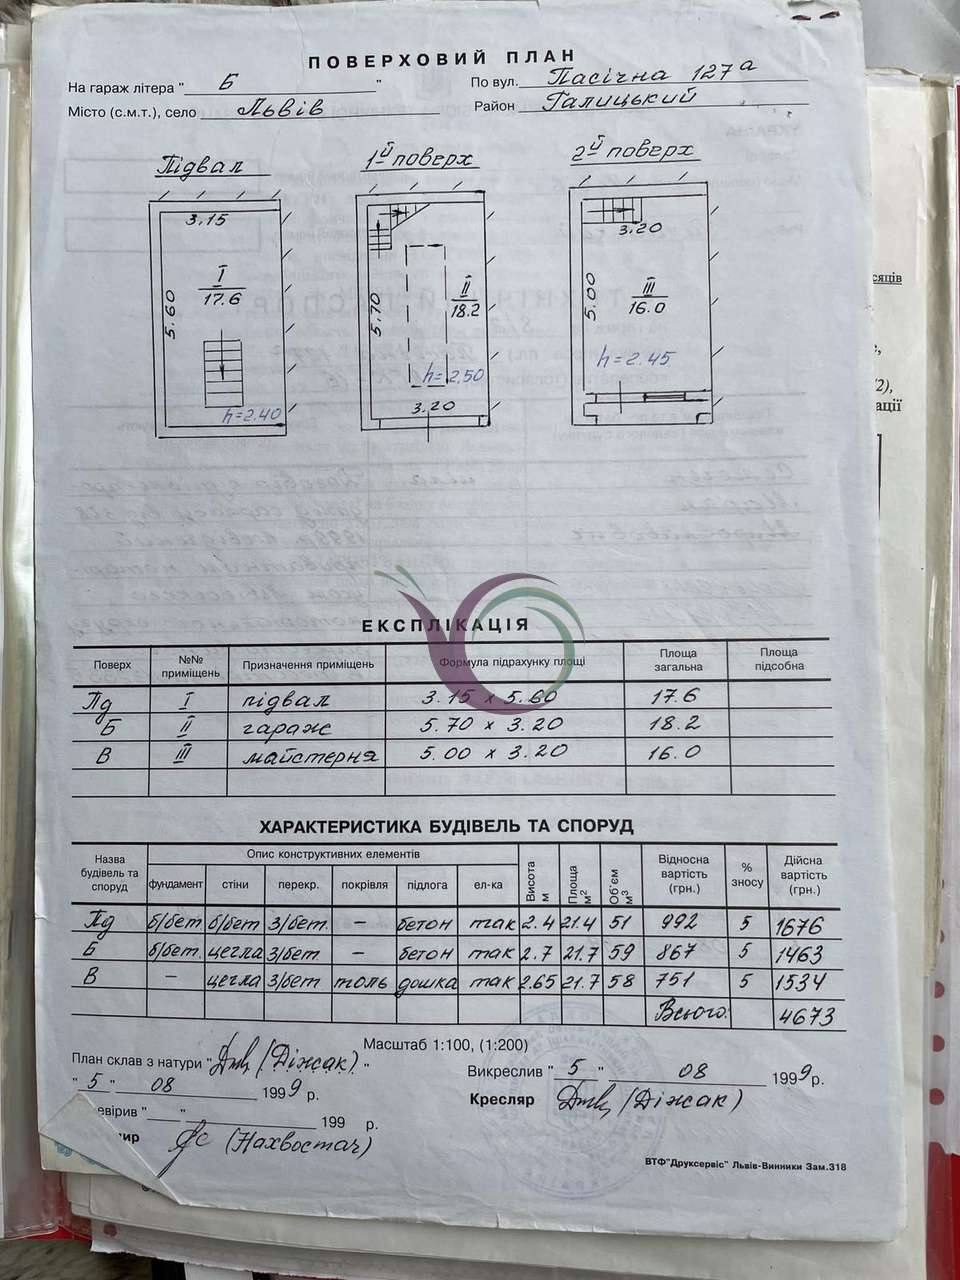 ПОВЕРХОВИЙ ПЛАН
На гараж літера " Б "
По вул. Пасічна 127а
Місто (с.м.т.), село Львів
Район Галицький
Підвал
1й поверх
2й поверх
3.15
I
17.6
5.60
h=2.40
5.70
II
18.2
h=2.50
3.20
3.20
5.00
III
16.0
h=2.45
ЕКСПЛІКАЦІЯ
Поверх №№ приміщень Призначення приміщень Формула підрахунку площі Площа загальна Площа підсобна
Пд I підвал 3.15 x 5.60 17.6
Б II гараж 5.70 x 3.20 18.2
В III майстерня 5.00 x 3.20 16.0
ХАРАКТЕРИСТИКА БУДІВЕЛЬ ТА СПОРУД
Назва будівель та споруд Опис конструктивних елементів Висота м Площа м2 Об'єм м3 Відносна вартість (грн.) % зносу Дійсна вартість (грн.)
фундамент стіни перекр. покрівля підлога ел-ка
Пд б/бет б/бет З/бет. – бетон так 2.4 21.4 51 992 5 1676
Б б/бет. цегла З/бет – бетон так 2.7 21.7 59 867 5 1463
В – цегла З/бет толь дошка так 2.65 21.7 58 751 5 1534
Всього: 4673
Масштаб 1:100, (1:200)
План склав з натури " (Діжак) "
" 5 " 08 1999 р.
Викреслив " 5 " 08 1999 р.
Кресляр (Діжак)
евірив " " 199 р.
ир (Нахвостач)
ВТФ"Друксервіс" Львів-Винники Зам.318
сяців
2),
ації